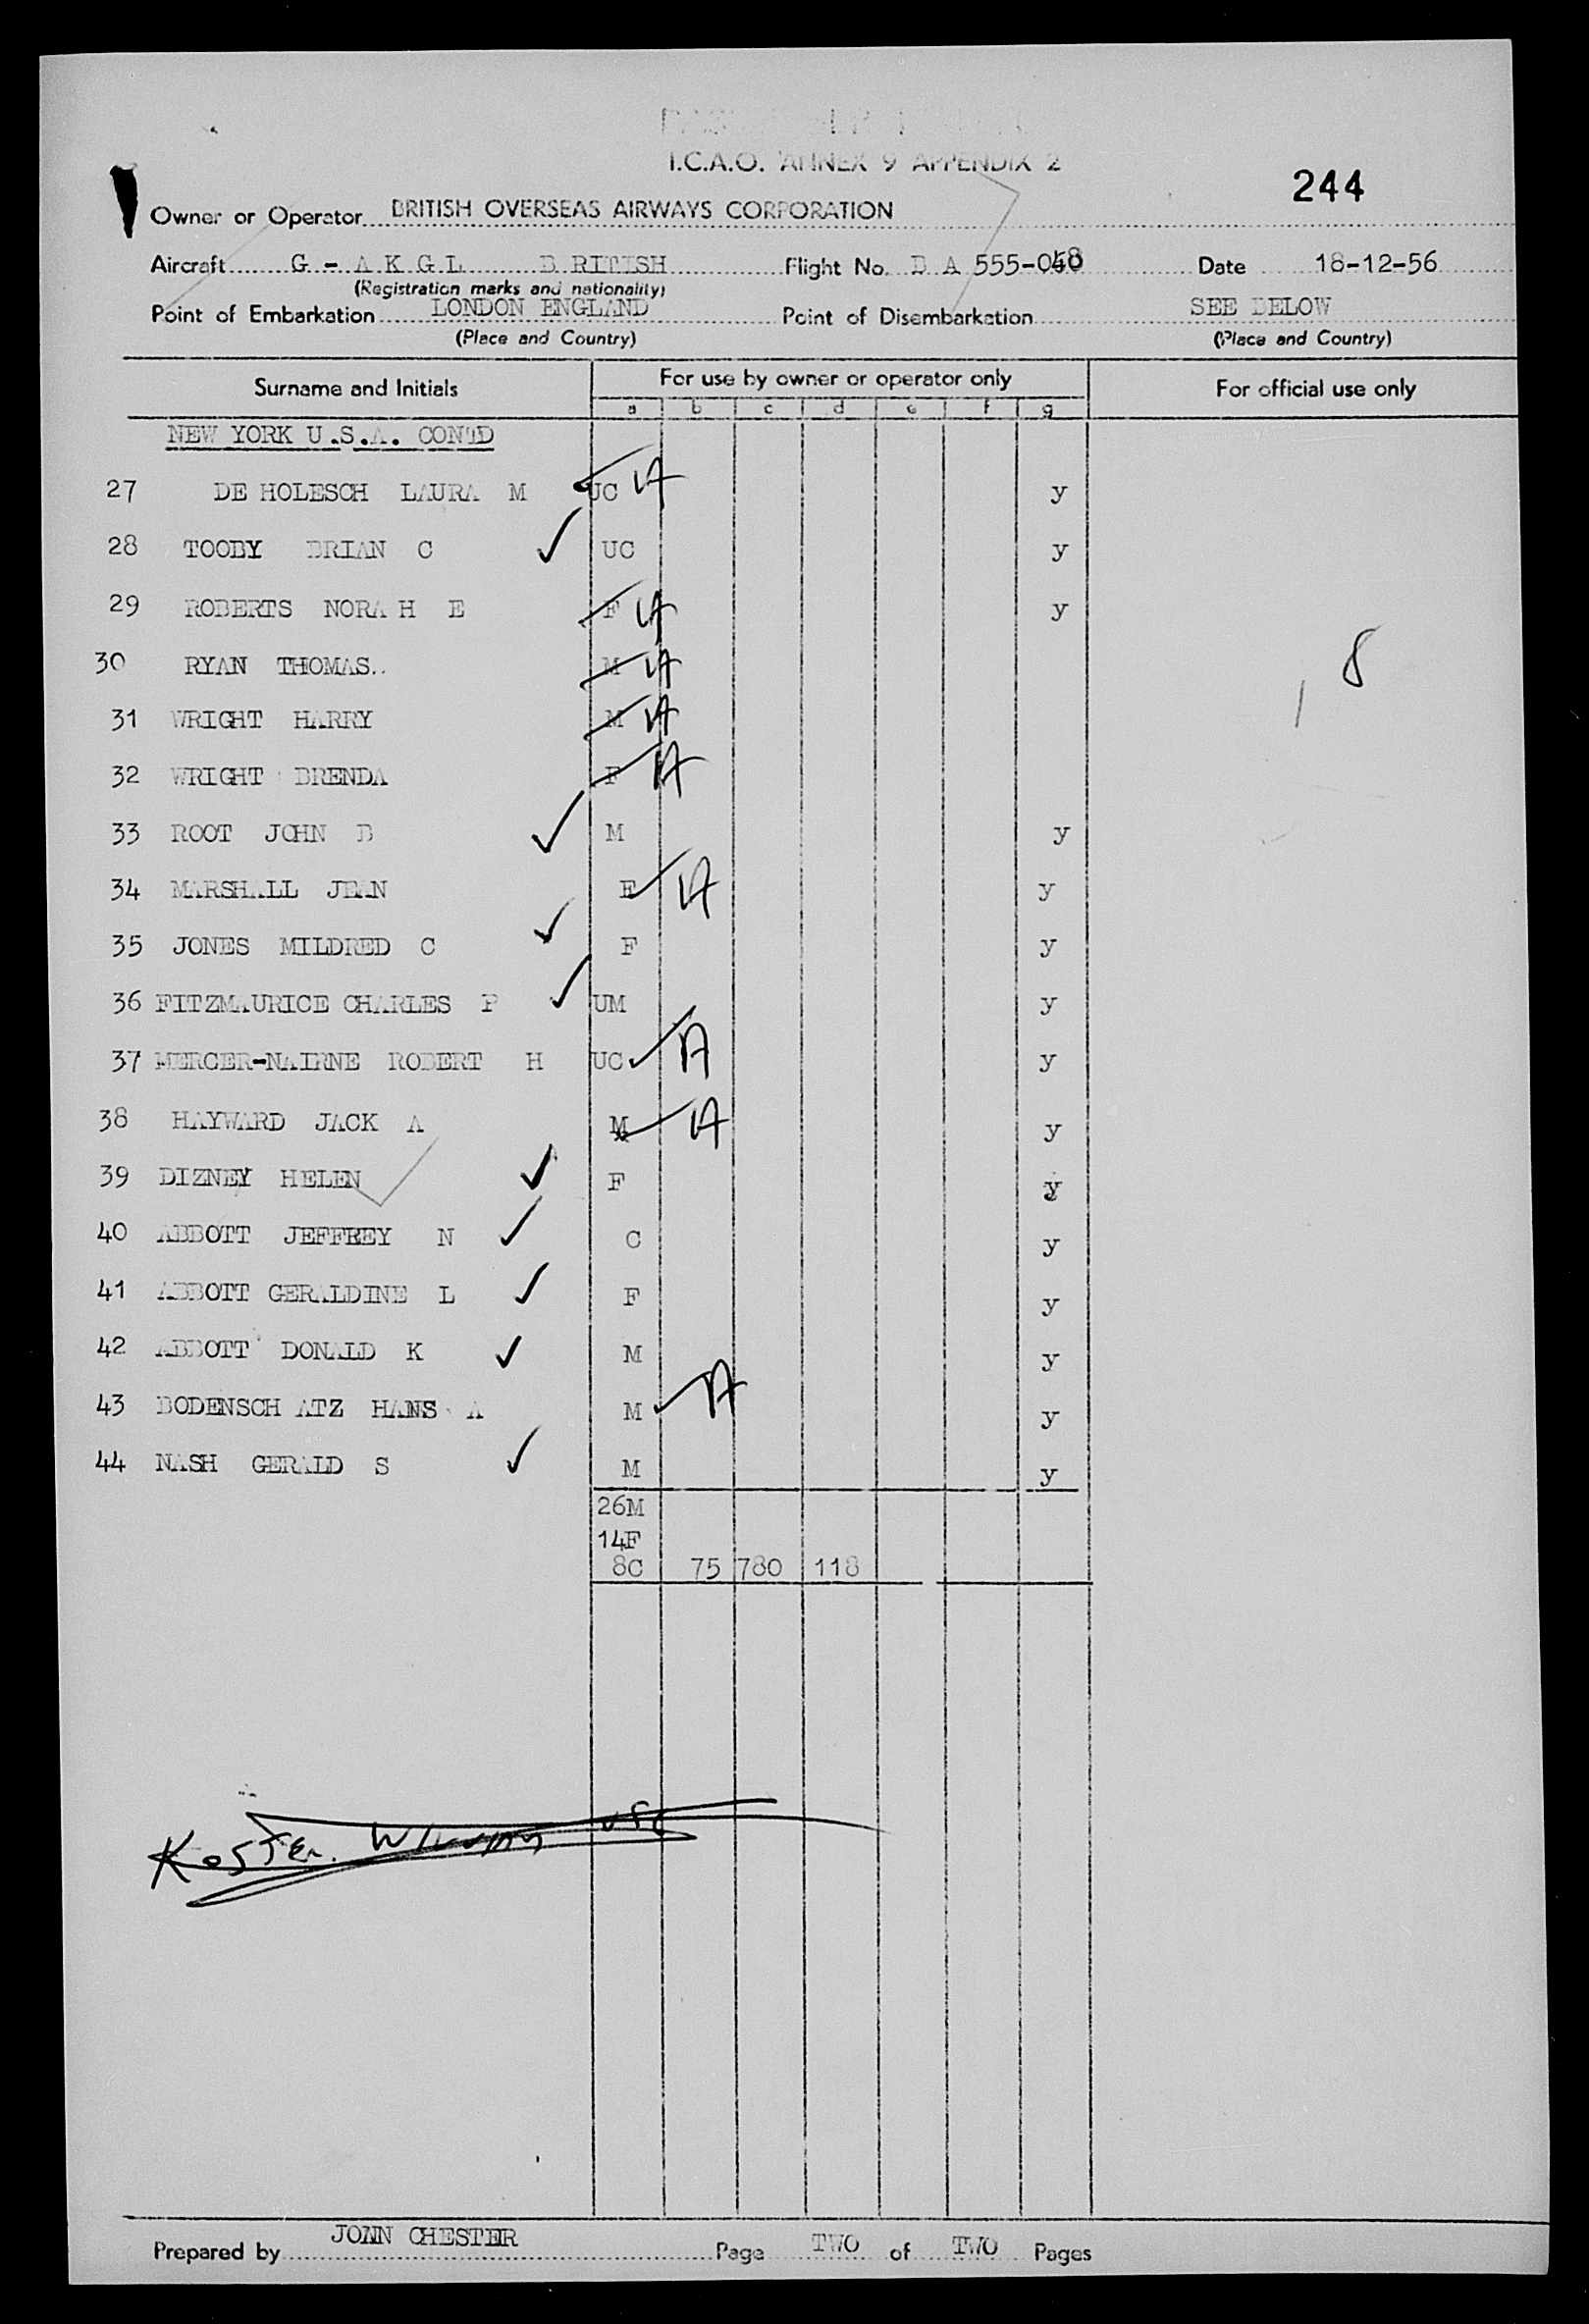 I.C.A.O. ANNEX 9 APPENDIX 2
244
Owner or Operator BRITISH OVERSEAS AIRWAYS CORPORATION
Aircraft G - A K G L BRITISH Flight No. B A 555-048 Date 18-12-56
(Registration marks and nationality)
Point of Embarkation LONDON ENGLAND Point of Disembarkation SEE BELOW
(Place and Country) (Place and Country)
Surname and Initials For use by owner or operator only For official use only
a b c d e f g
NEW YORK U.S.A. CONTD
27 DE HOLESCH LAURA M UC IA y
28 TOOBY BRIAN C UC y
29 ROBERTS NORAH E F IA y
30 RYAN THOMAS.. M IA
8
31 WRIGHT HARRY M IA
32 WRIGHT BRENDA F IA
33 ROOT JOHN B M y
34 MARSHALL JEAN F IA y
35 JONES MILDRED C F y
36 FITZMAURICE CHARLES P UM y
37 MERCER-NAIRNE ROBERT H UC IA y
38 HAYWARD JACK A M IA y
39 DIZNEY HELEN F y
40 ABBOTT JEFFREY N C y
41 ABBOTT GERALDINE L F y
42 ABBOTT DONALD K M y
43 BODENSCH ATZ HANS A M IA y
44 NASH GERALD S M y
26M
14F
8C 75 780 118
Prepared by JOAN CHESTER Page TWO of TWO Pages